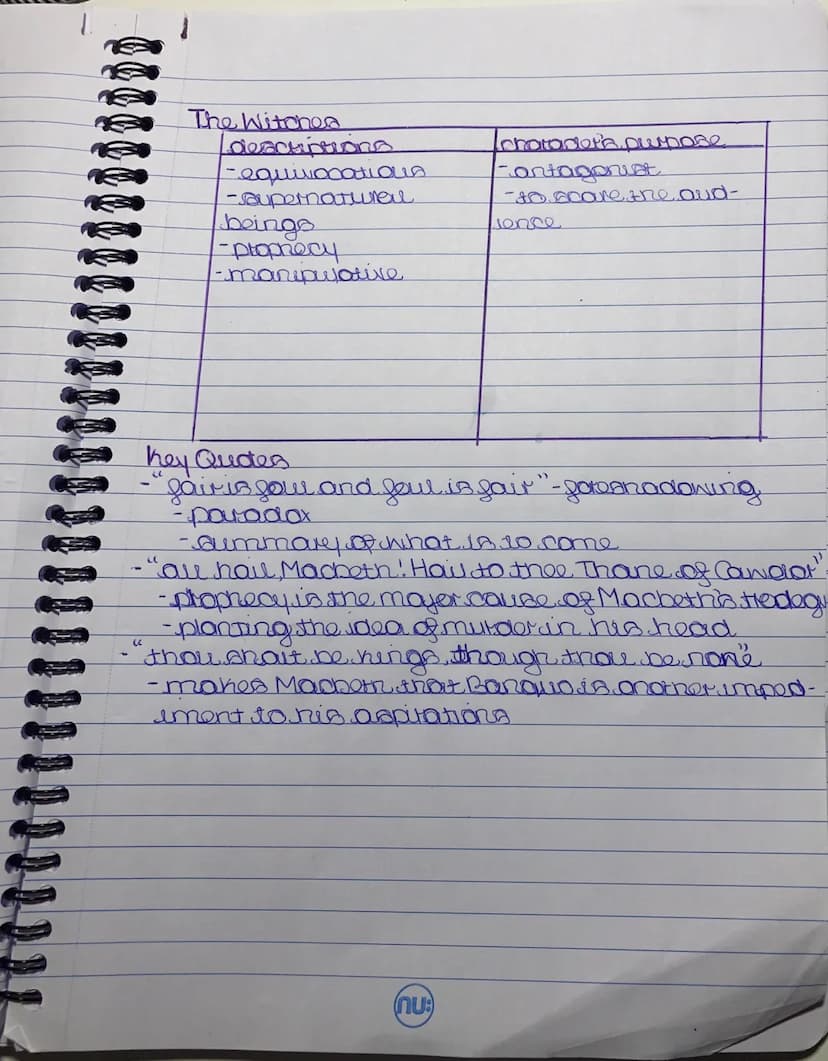 The Witches
descriptions
character's purpose
-equivocations
-antagonist
-supernatural
-to scare the aud-
beings
ience
-prophecy
-manipulative
Key Quotes
-"fair is foul and foul is fair" - foreshadowing
-paradox
-summary of what is to come
-"all hail, Macbeth! Hail to thee Thane of Cawdor"
-prophecy is the major cause of Macbeth's tredegy
-planting the idea of murder in his head
-"thou shalt be kings, though thou be none"
-makes Macbeth that Banquo is another imped-
iment to his aspirations
nu: